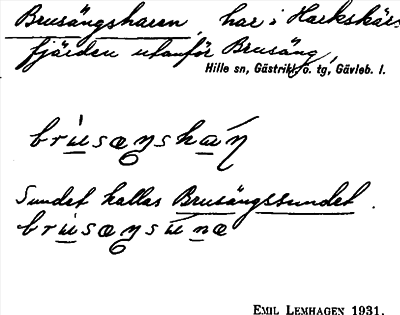 Brusängsharen, har i Harkskärs
fjärden utanför Brusäng,
Hille sn, Gästrikl. o. tg, Gävleb. l.
Sundet kallas Brusängssundet.
EMIL LEMHAGEN 1931.